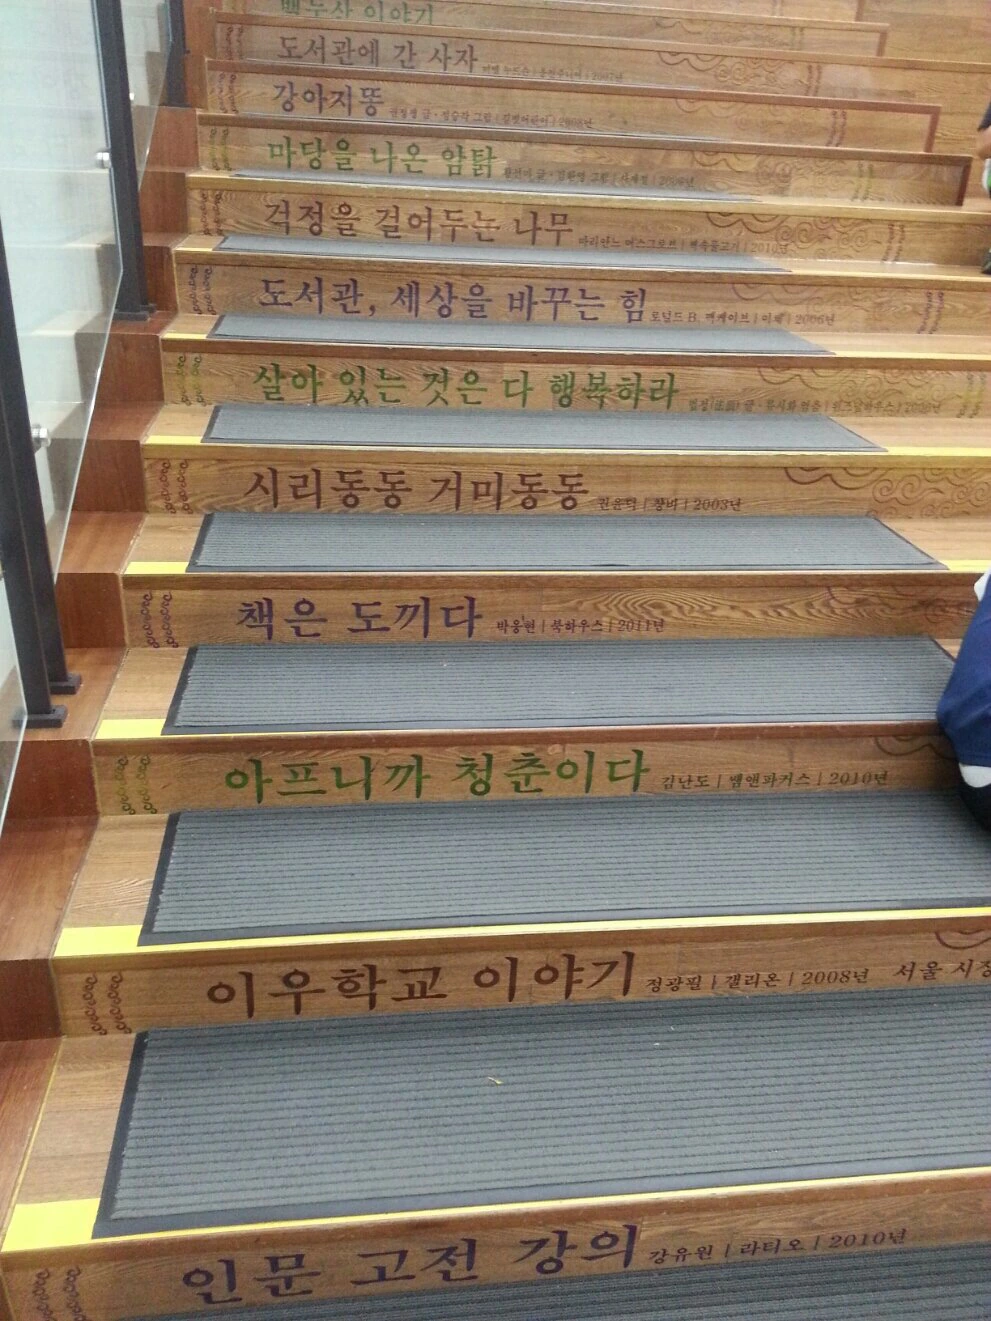 백두산 이야기
도서관에 간 사자 미셸 누드슨 | 웅진주니어 | 2007년
강아지똥 권정생 글 · 정승각 그림 | 길벗어린이 |
마당을 나온 암탉 황선미 글 · 김환영 그림 | 사계절 |
걱정을 걸어두는 나무 마리안느 머스그로브 | 책속물고기 | 2010년
도서관, 세상을 바꾸는 힘 로널드 B. 맥케이브 | 이채 | 2006년
살아 있는 것은 다 행복하라 법정(法頂) 글 · 류시화 엮음 | 위즈덤하우스 |
시리동동 거미동동 권윤덕 | 창비 | 2003년
책은 도끼다 박웅현 | 북하우스 | 2011년
아프니까 청춘이다 김난도 | 쌤앤파커스 | 2010년
이우학교 이야기 정광필 | 갤리온 | 2008년 서울 시장
인문 고전 강의 강유원 | 라티오 | 2010년